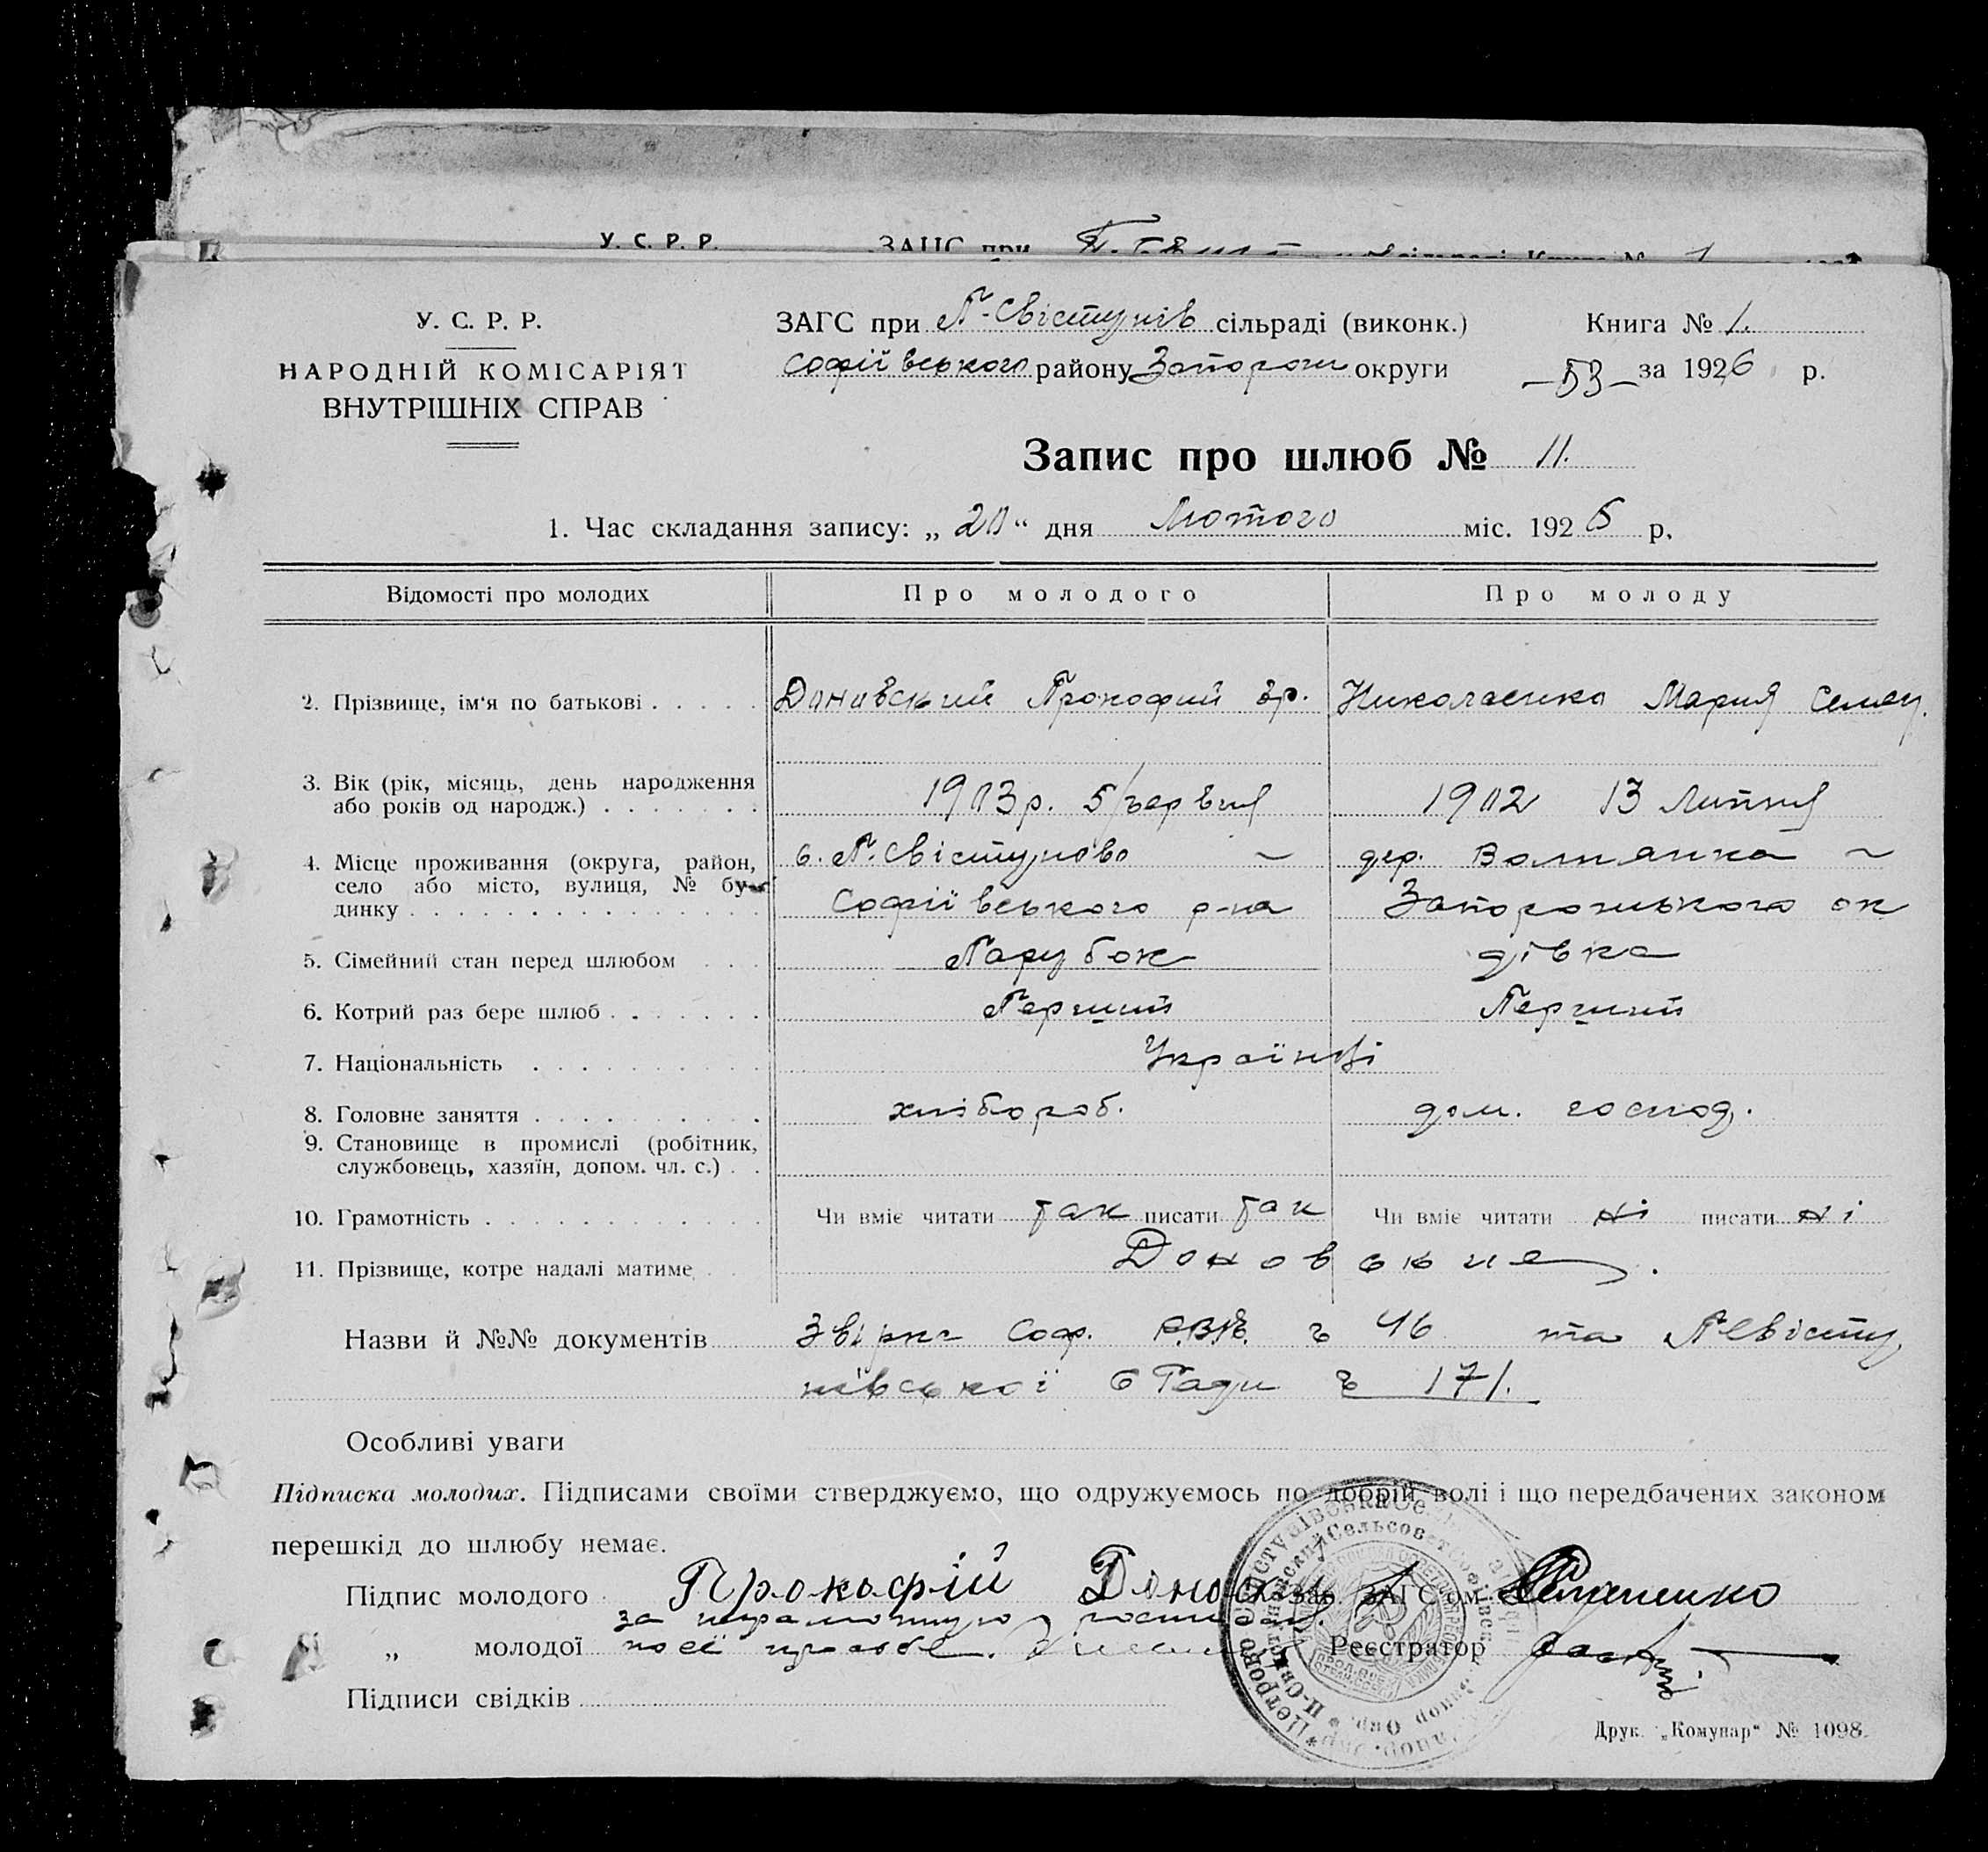 У. С. Р. Р. ЗАГС при
У. С. Р. Р.
НАРОДНІЙ КОМІСАРІЯТ
ВНУТРІШНІХ СПРАВ
ЗАГС при П-Свістунів сільраді (виконк.) Книга № 1.
Софіївського району Запорож округи —53— за 1926 р.
Запис про шлюб № 11.
1. Час складання запису: „ 20 “ дня Лютого міс. 1926 р.
Відомості про молодих Про молодого Про молоду
2. Прізвище, ім'я по батькові Доновский Прокофий Гр. Николаенко Мария Семен.
3. Вік (рік, місяць, день народження
або років од народж.) 1903р. 5/червня 1902 13 Липня
4. Місце проживання (округа, район, с. П. Свістуново дер. Волнянка
село або місто, вулиця, № бу-
динку Софіївського р-на Запорожського ок
5. Сімейний стан перед шлюбом Парубок дівка
6. Котрий раз бере шлюб Перший Перший
7. Національність Українці
8. Головне заняття хлібороб. дом. господ.
9. Становище в промислі (робітник,
службовець, хазяїн, допом. чл. с.)
10. Грамотність Чи вміє читати так писати так Чи вміє читати ні писати ні
11. Прізвище, котре надалі матиме Доновские.
Назви й №№ документів Соф. Р.В.К. ч 46 та П Свісту
нівської С Ради ч 171.
Особливі уваги
Підписка молодих. Підписами своїми стверджуємо, що одружуємось по добрій волі і що передбачених законом
перешкід до шлюбу немає.
Підпис молодого Прокофій Зав. ЗАГС'ом
„ молодої за неграмотную
по её прозьбе. Реєстратор
Підписи свідків
Друк. „Комунар“ № 1098.